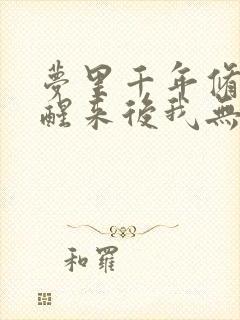 夢里千年脩
醒來後我無
和羅